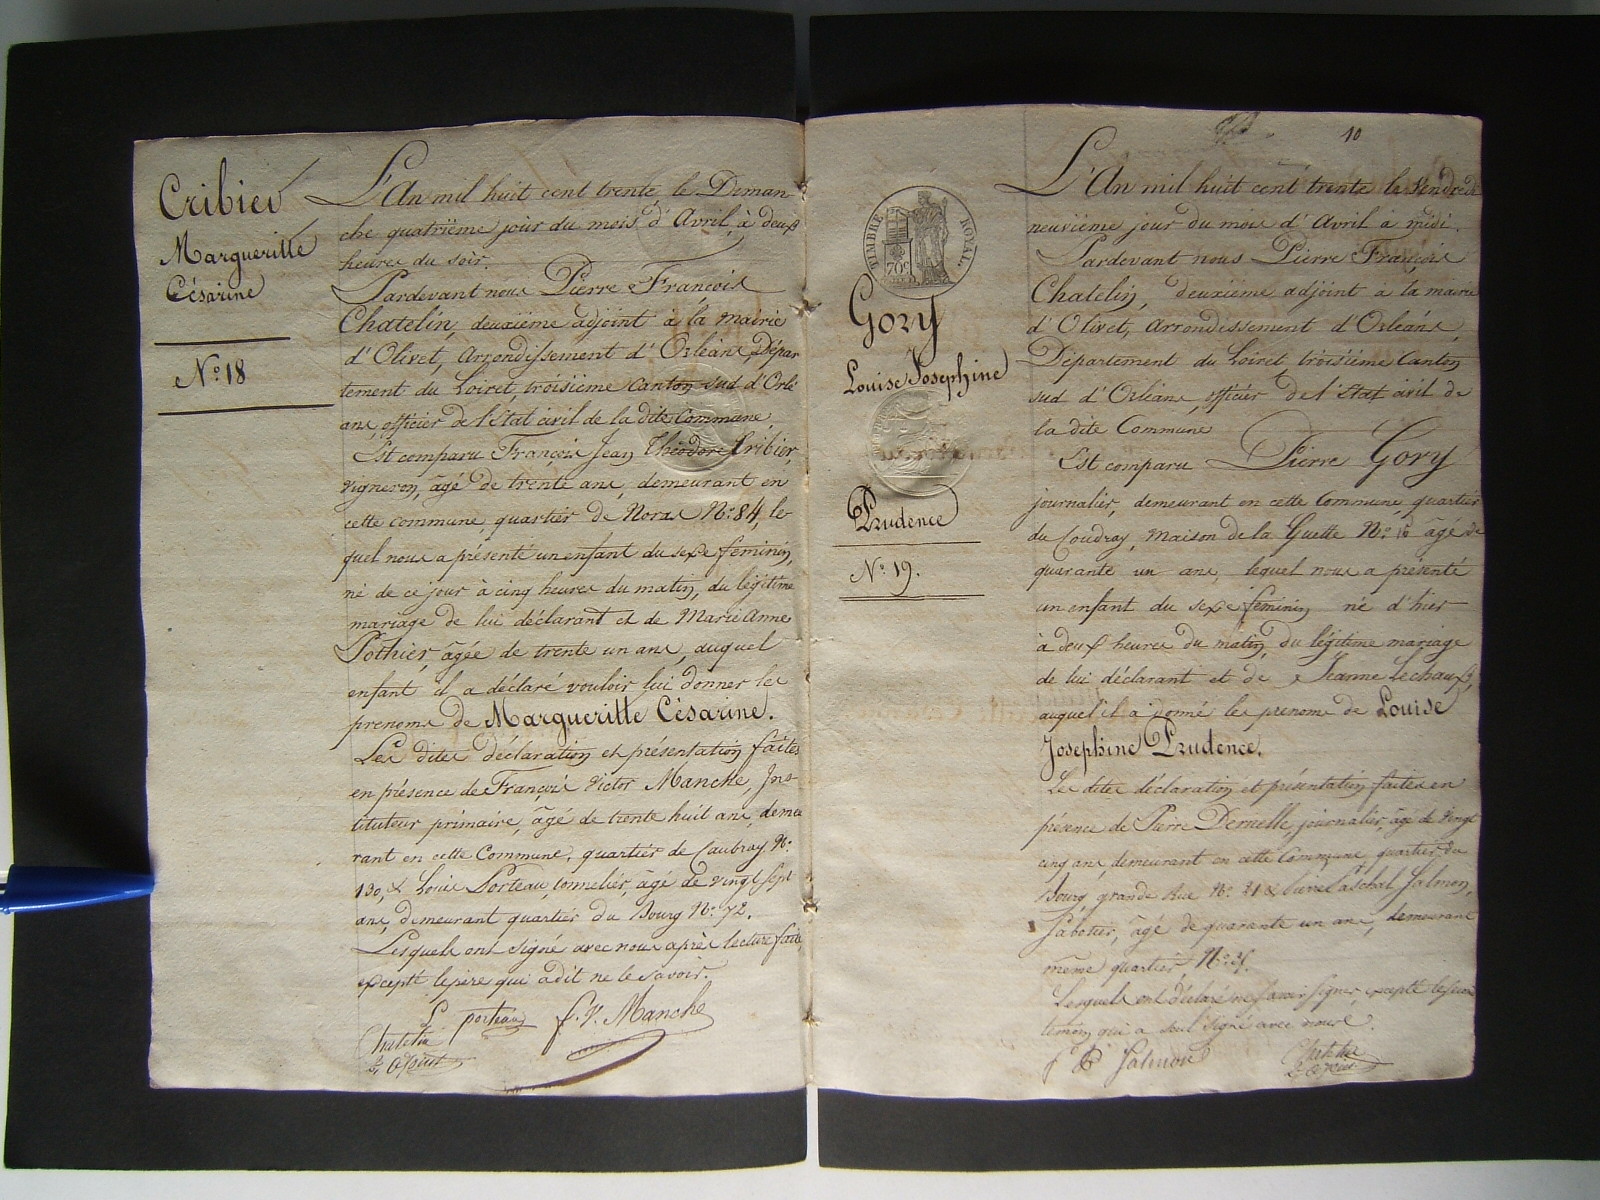 Cribier
Margueritte
Césarine
N.° 18
L'An mil huit cent trente, le Diman
che quatrième jour du mois d'Avril, à deux
heures du soir.
Pardevant nous Pierre François
Chatelin, deuxième adjoint à la mairie
d'Olivet, arrondissement d'Orléans, Dépar
tement du Loiret, troisième canton sud d'Orlé
ans, officier de l'état civil de la dite Commune,
Est comparu François Jean Théodore Cribier,
vigneron, âgé de trente ans, demeurant en
cette commune quartier de Noras N.° 84, le
quel nous a présenté un enfant du sexe feminin,
né de ce jour à cinq heures du matin, du légitime
mariage de lui déclarant et de Marie Anne
Pothier, âgée de trente un ans, auquel
enfant il a déclaré vouloir lui donner les
prenoms de Margueritte Césarine.
Les dites déclaration et présentation faites
en présence de François Victor Manche, Ins-
tituteur primaire, âgé de trente huit ans, demeu
rant en cette Commune, quartier de Caubray N.°
130, & Louis Porteau, tonnelier, âgé de vingt sept
ans, demeurant quartier du Bourg N.° 72.
Lesquels ont signé avec nous après lecture faite,
excepté le père qui a dit ne le savoir.
L porteau f. V. Manche
Chatelin
10
TIMBRE ROYAL
70c
Gory
Louise Josephine
Prudence
N.° 19.
L'An mil huit cent trente le Vendredi
neuvième jour du mois d'Avril à midi.
Pardevant nous Pierre François
Chatelin, deuxième adjoint à la mairie
d'Olivet, arrondissement d'Orléans,
Département du Loiret, troisième Canton
sud d'Orléans, officier de l'Etat civil de
la dite Commune
Est comparu Pierre Gory
journalier, demeurant en cette Commune, quartier
du Coudray, maison de la Guette N.° 16 âgé de
quarante un ans, lequel nous a présenté
un enfant du sexe feminin né d'hier
à deux heures du matin, du légitime mariage
de lui déclarant et de Jeanne Lechaux,
auquel il a donné les prenoms de Louise
Josephine Prudence.
Les dites déclaration et présentation faites en
présence de Pierre Dernelle, journalier, âgé de vingt
cinq ans, demeurant en cette Commune, quartier du
Bourg, grande Rue N.° 31 & Pierre Paschal Salmon,
Sabotier, âgé de quarante un ans, demeurant
même quartier N.°
Lesquels ont déclaré ne savoir signer, excepté le second
temoin qui a seul signé avec nous.
P Salmon Chatelin